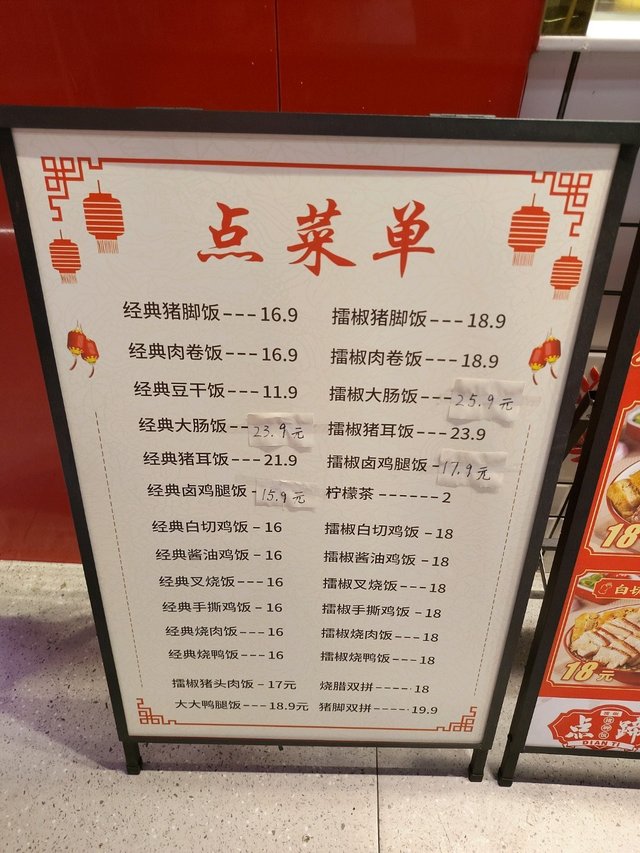 点菜单
经典猪脚饭---16.9 擂椒猪脚饭---18.9
经典肉卷饭---16.9 擂椒肉卷饭---18.9
经典豆干饭---11.9 擂椒大肠饭---25.9元
经典大肠饭---23.9元 擂椒猪耳饭---23.9
经典猪耳饭---21.9 擂椒卤鸡腿饭-17.9元
经典卤鸡腿饭-15.9元 柠檬茶------2
经典白切鸡饭-16 擂椒白切鸡饭-18
经典酱油鸡饭-16 擂椒酱油鸡饭-18
经典叉烧饭---16 擂椒叉烧饭---18
经典手撕鸡饭-16 擂椒手撕鸡饭-18
经典烧肉饭---16 擂椒烧肉饭---18
经典烧鸭饭---16 擂椒烧鸭饭---18
擂椒猪头肉饭-17元 烧腊双拼---18
大大鸭腿饭---18.9元 猪脚双拼---19.9
18
白切
18元
点 蹄
DIAN TI